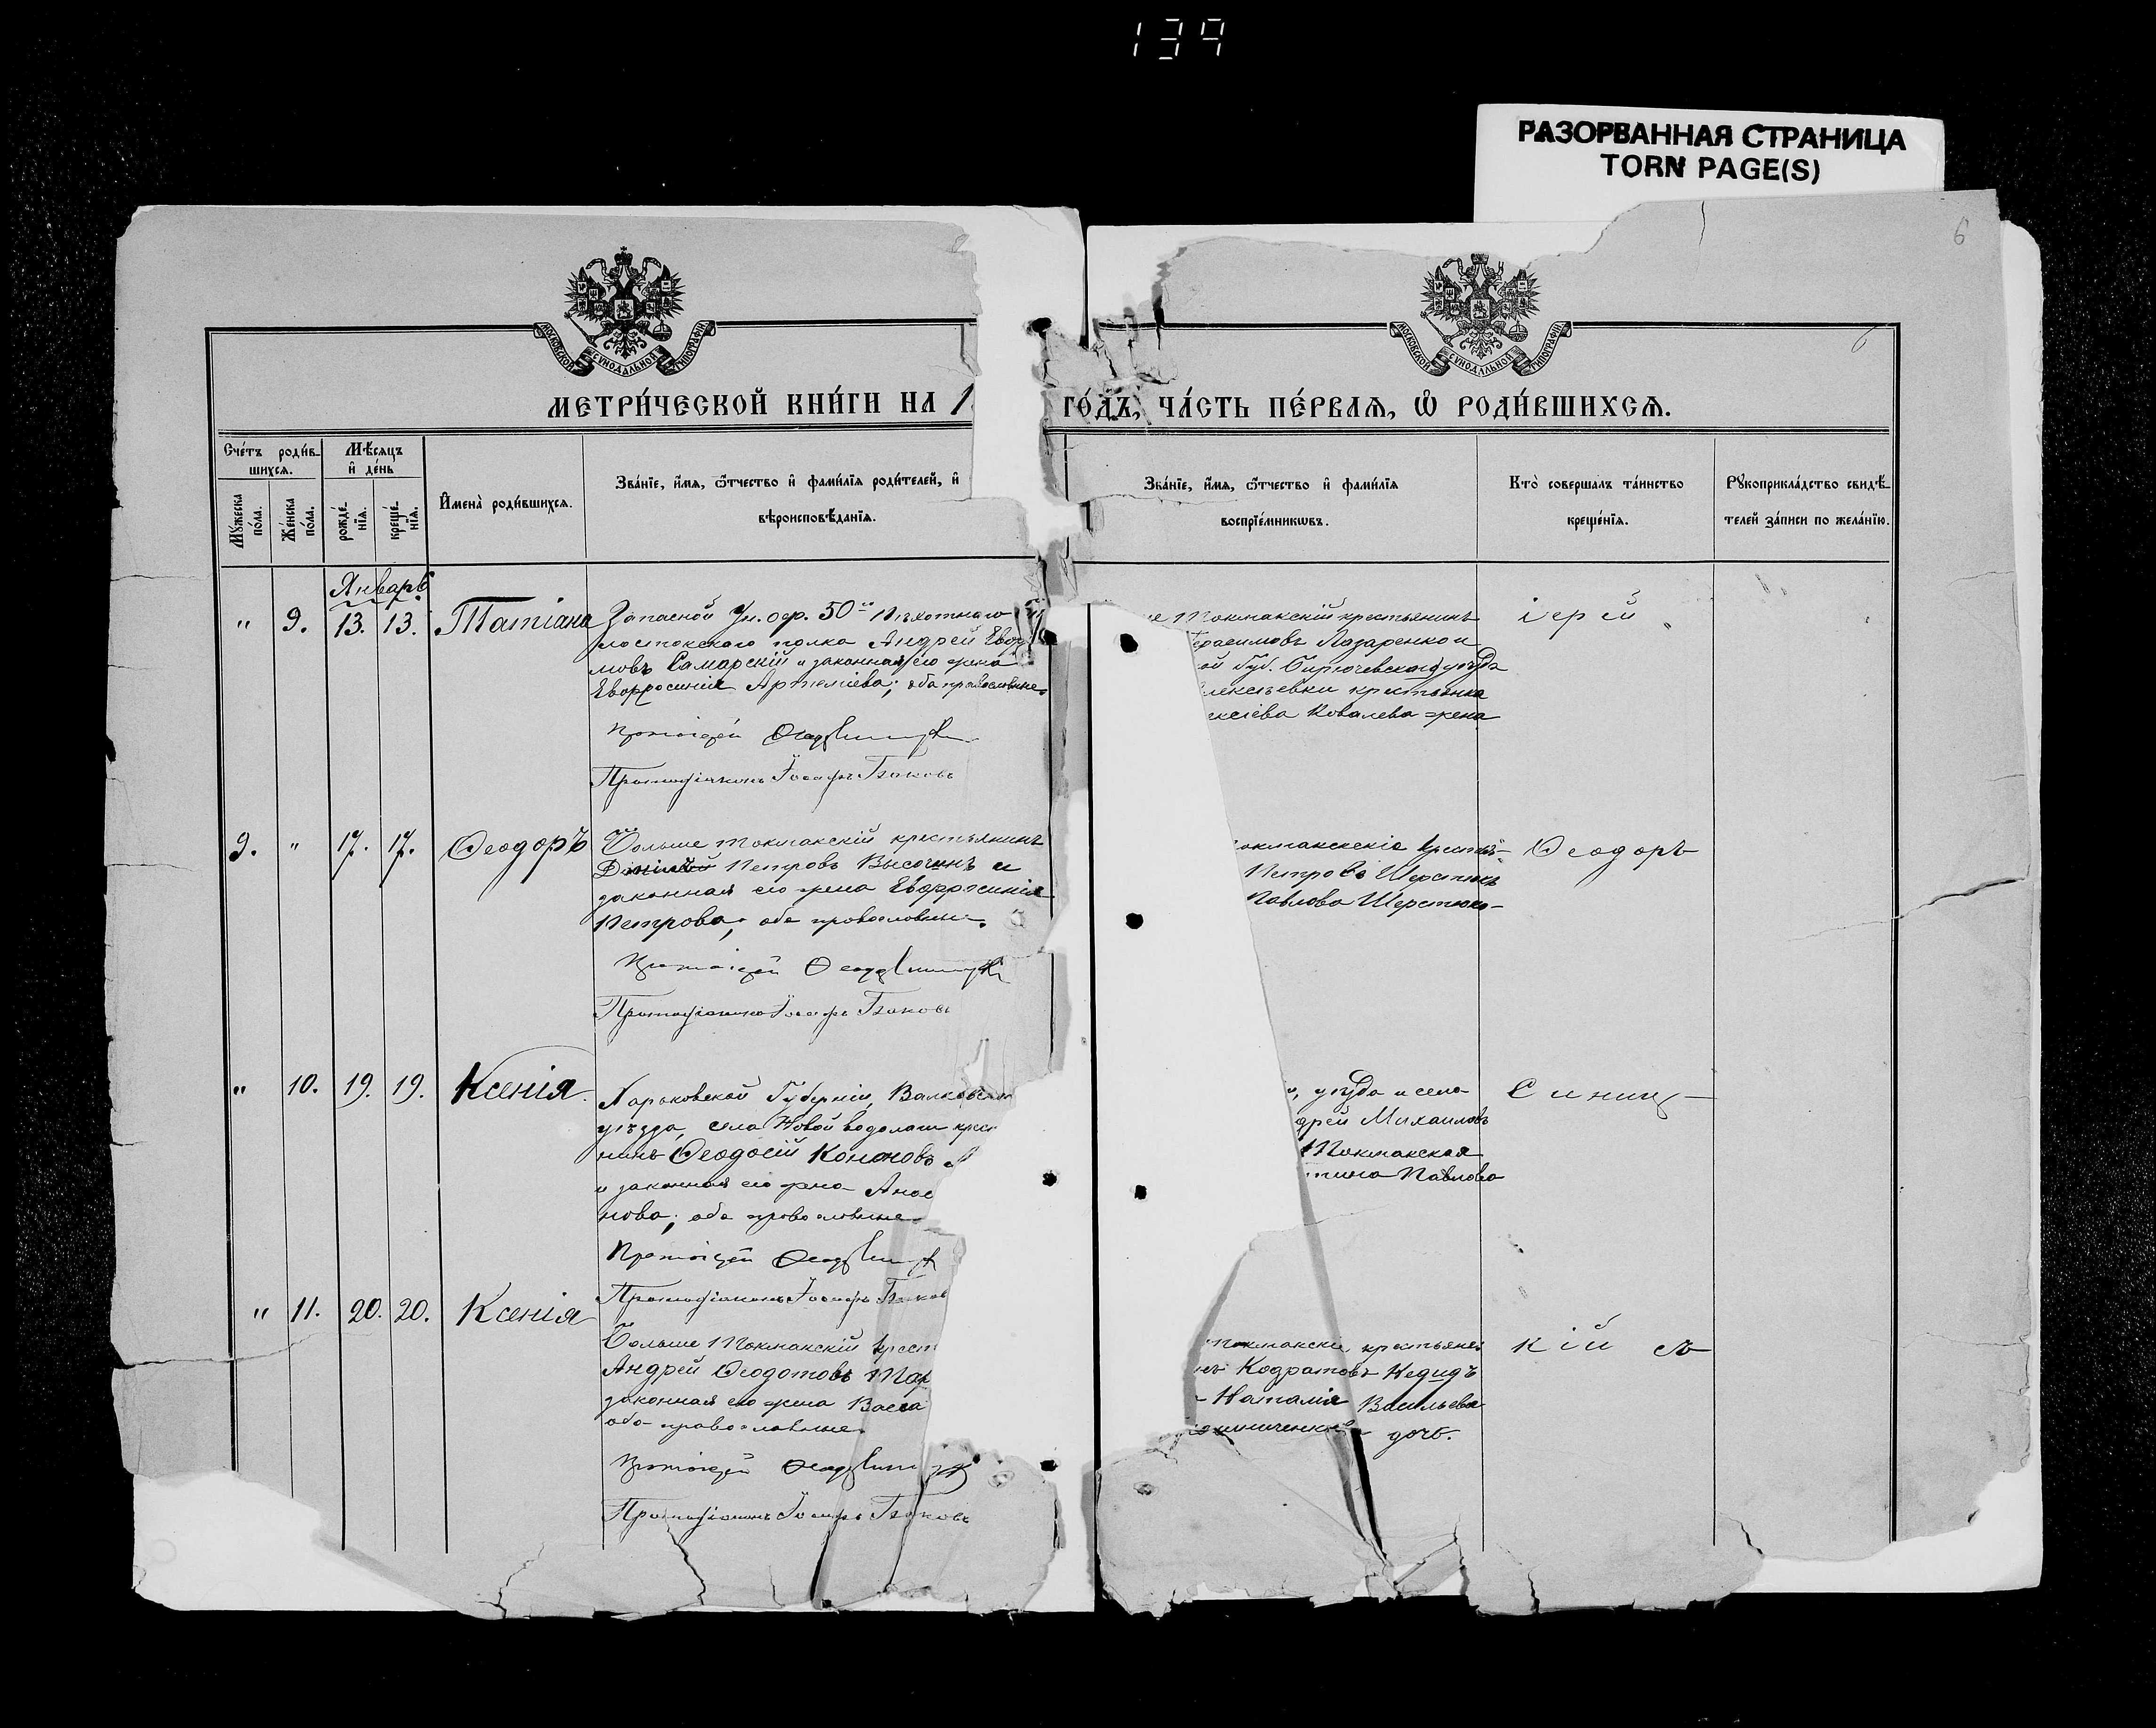 139
РАЗОРВАННАЯ СТРАНИЦА
TORN PAGE(S)
6
6
МОСКОВСКОЙ СѴНОДАЛЬНОЙ ТИПОГРАФІИ
МОСКОВСКОЙ СѴНОДАЛЬНОЙ ТИПОГРАФІИ
МЕТРИ́ЧЕСКОЙ КНИ́ГИ НА 1
ГО́ДЪ, ЧА́СТЬ ПЕ́РВАѦ, Ѡ҆ РОДИ́ВШИХСѦ.
Сче́тъ роди́в-
шихсѧ.
Мꙋ́жеска по́ла.
Же́нска по́ла.
Мѣ́сѧцъ
и҆ де́нь
рожде́-
нїѧ.
креще́-
нїѧ.
И҆мена̀ роди́вшихсѧ.
Зва́нїе, и҆́мѧ, ѻ҆́тчество и҆ фами́лїѧ роди́телей, и҆
вѣроисповѣ́данїѧ.
Зва́нїе, и҆́мѧ, ѻ҆́тчество и҆ фами́лїѧ
воспрїе́мникѡвъ.
Кто̀ соверша́лъ та́инство
креще́нїѧ.
Рꙋкоприкла́дство свидѣ́-
телей за́писи по жела́нїю.
Январь
" 9. 13. 13. Татіана
Запасной Ун. оф. 50го Пѣхотнаго
полка Андрей Евдо
мовъ Самарскій и законная его жена
Евфросинія Артеміева; оба православные
Протоіерей
Протодіаконъ Іосифъ
Токмакскій крестьянинъ
Герасимовъ Лазаренко и
ой Губ. Бирюченскаго уѣзда
лексѣевки крестьянка
ексіева Ковалева жена
іерей
9. " 17. 17. Ѳеодоръ
Больше Токмакскій крестьянинъ
Петровъ Высочинъ и
законная его жена Евфросинія
Петрова; оба православные.
Протоіерей
Протодіаконъ Іосифъ
окмакскіе крестья-
Петровъ Шерстюкъ
Павлова Шерстюко-
Ѳеодоръ
" 10. 19. 19. Ксенія
Харьковской Губерніи, Валковскаго
уѣзда, села Новой Водолаги крест
нинъ Ѳеодосій Кононовъ
и законная его жена Анас
нова; оба православные
Протоіерей
Протодіаконъ Іосифъ
, уѣзда и села
дрей Михаиловъ
Токмакская
тина Павлова
Синиц-
" 11. 20. 20. Ксенія
Больше Токмакскій крест
Андрей Ѳеодотовъ
законная его жена Васса
оба православные.
Протоіерей
Протодіаконъ Іосифъ
токмакскіе крестьяне
Кодратовъ Недидъ
Наталія Васильева
дочь.
кій съ